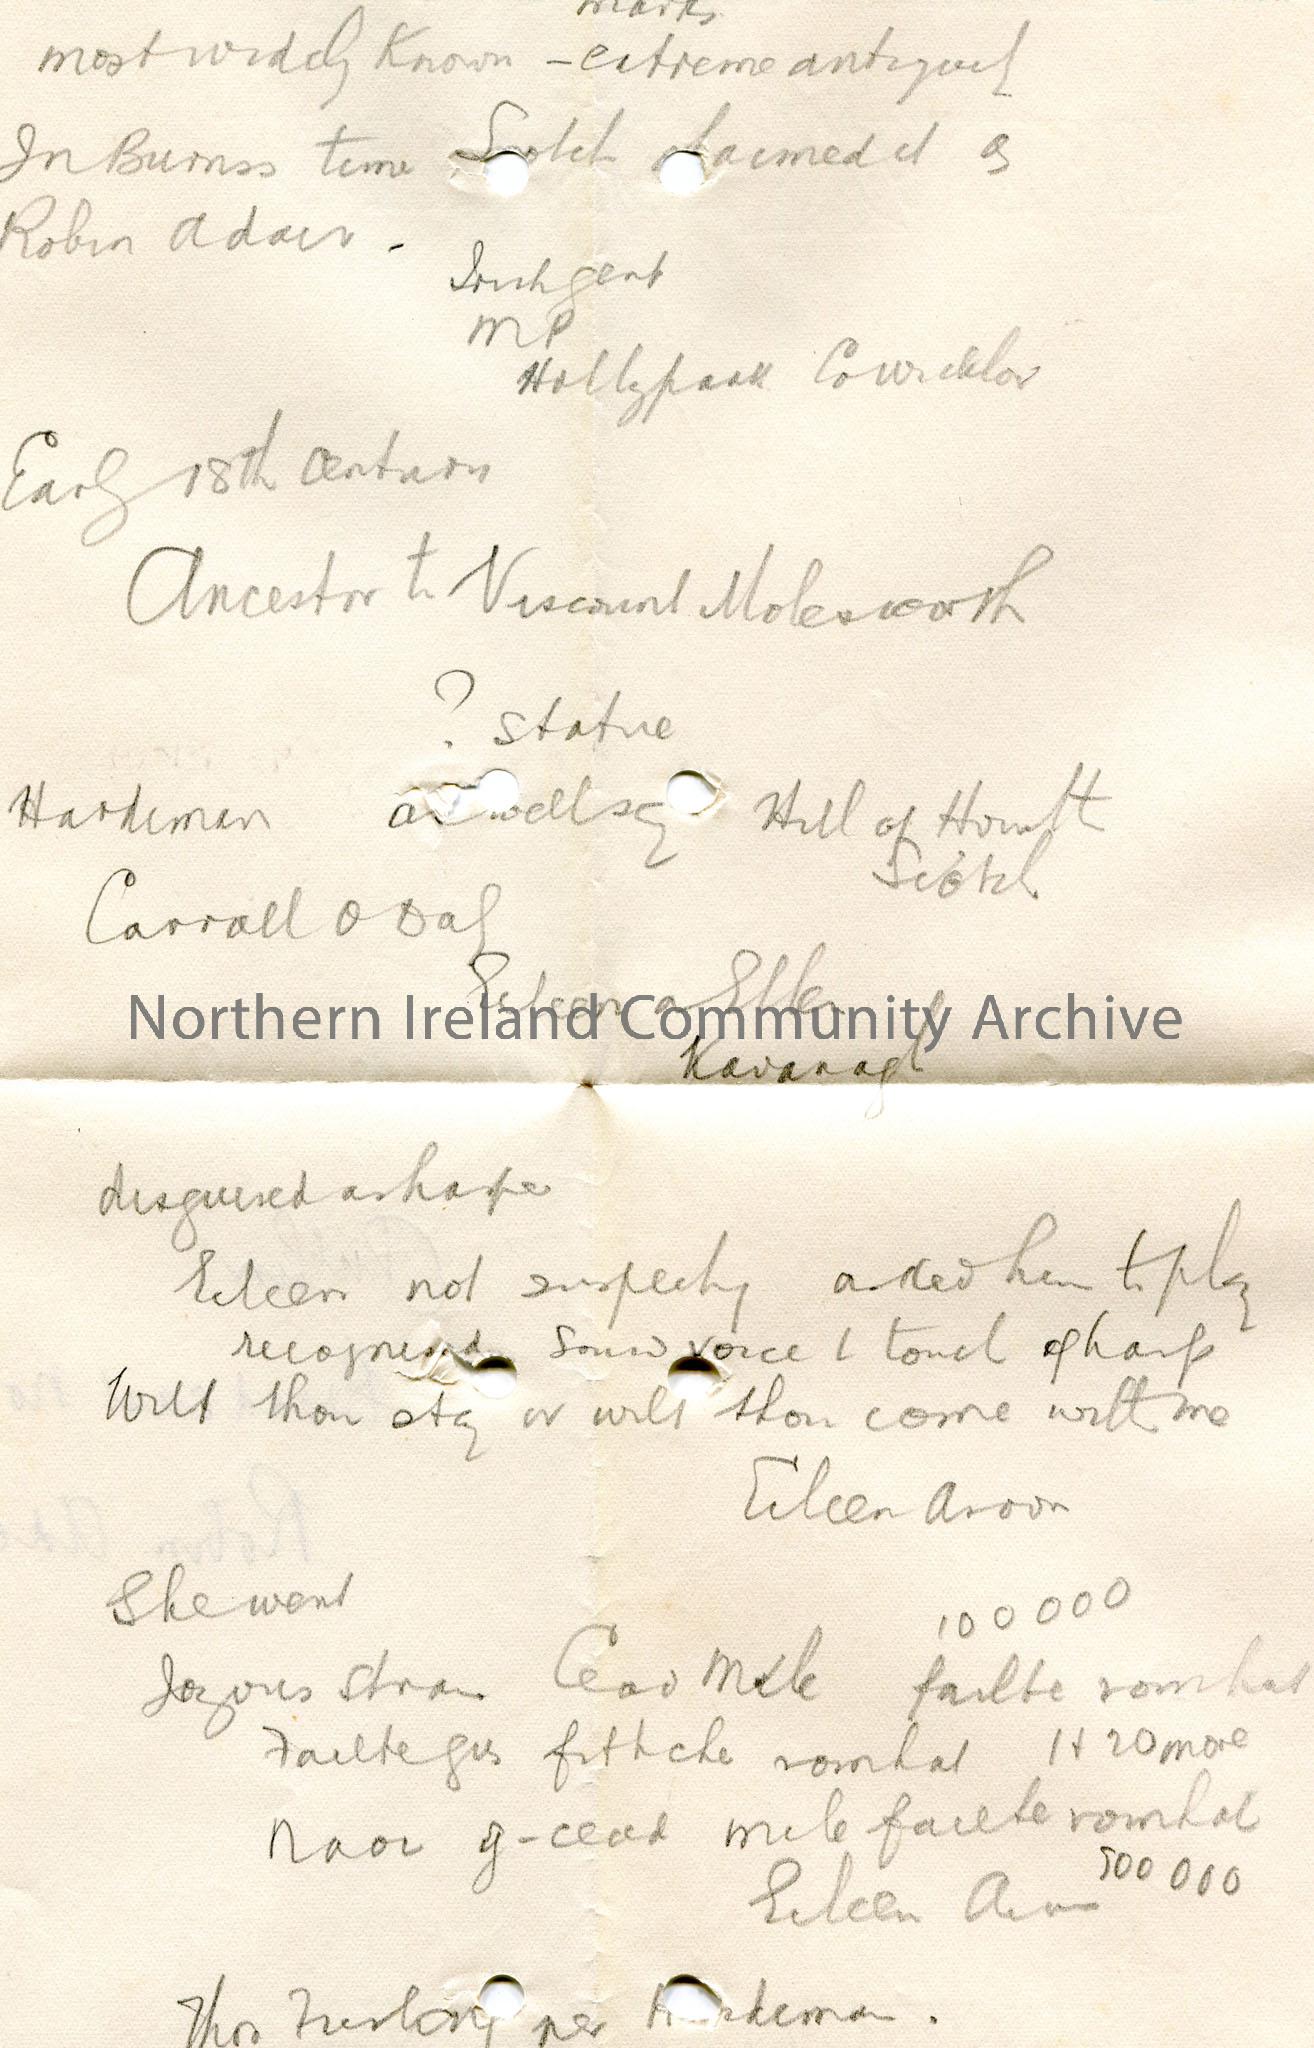 marks
most widely Known - extreme antiquity
In Burnss time Scotch claimed it as
Robin Adair -
Irish gent
MP
Hollypark Co Wicklow
Early 18th Century
Ancestor to Viscount Molesworth
? Statue
Hardiman as well say Hill of Howth
Scotch
Carroll O Daly
Eileen a Ellen
Kavanagh
Northern Ireland Community Archive
disguised as harper
Eileen not suspecting asked him to play
recognised Sound voice & touch of harp
Wilt thou stay or wilt thou come with me
Eileen Aroon
She went
100 000
Joyous strain Cead Mile failte romhat
Failte gus fithche romhat 1+20 more
Naoi g-cead mile failte romhat
900 000
Eileen Aroon
Thos Furlong per Hardeman.